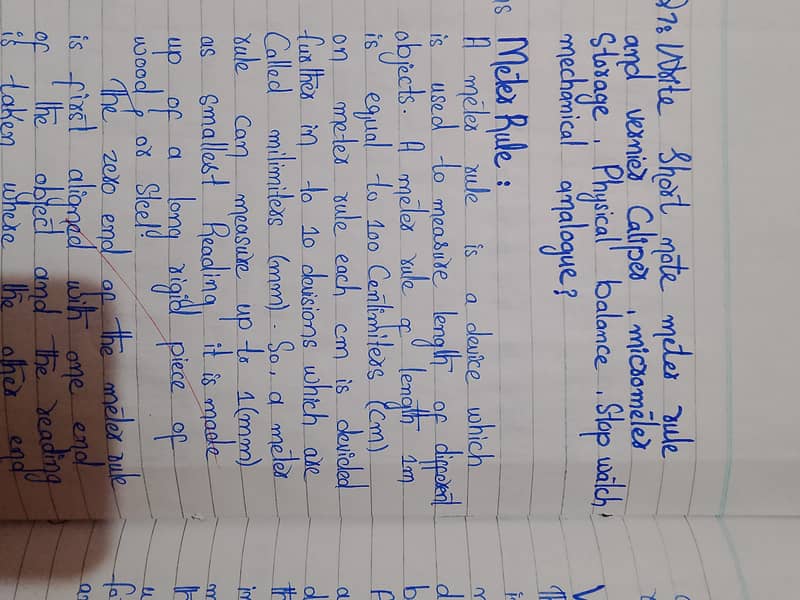 Q7: Write Short note meter rule
and vernier Caliper, micrometer
Storage, Physical balance, Stop watch,
mechanical analogue?
Meter Rule:
A meter rule is a device which
is used to measure length of different
objects. A meter rule of length 1m
is equal to 100 Centimiters (cm)
on meter rule each cm is devided
further in to 10 devisions which are
Called milimiters (mm). So, a meter
rule can measure up to 1(mm)
as smallest Reading it is made
up of a long rigid piece of
wood or Steel
The zero end of the meter rule
is first aligned with one end
of the object and the reading
is taken where the other end